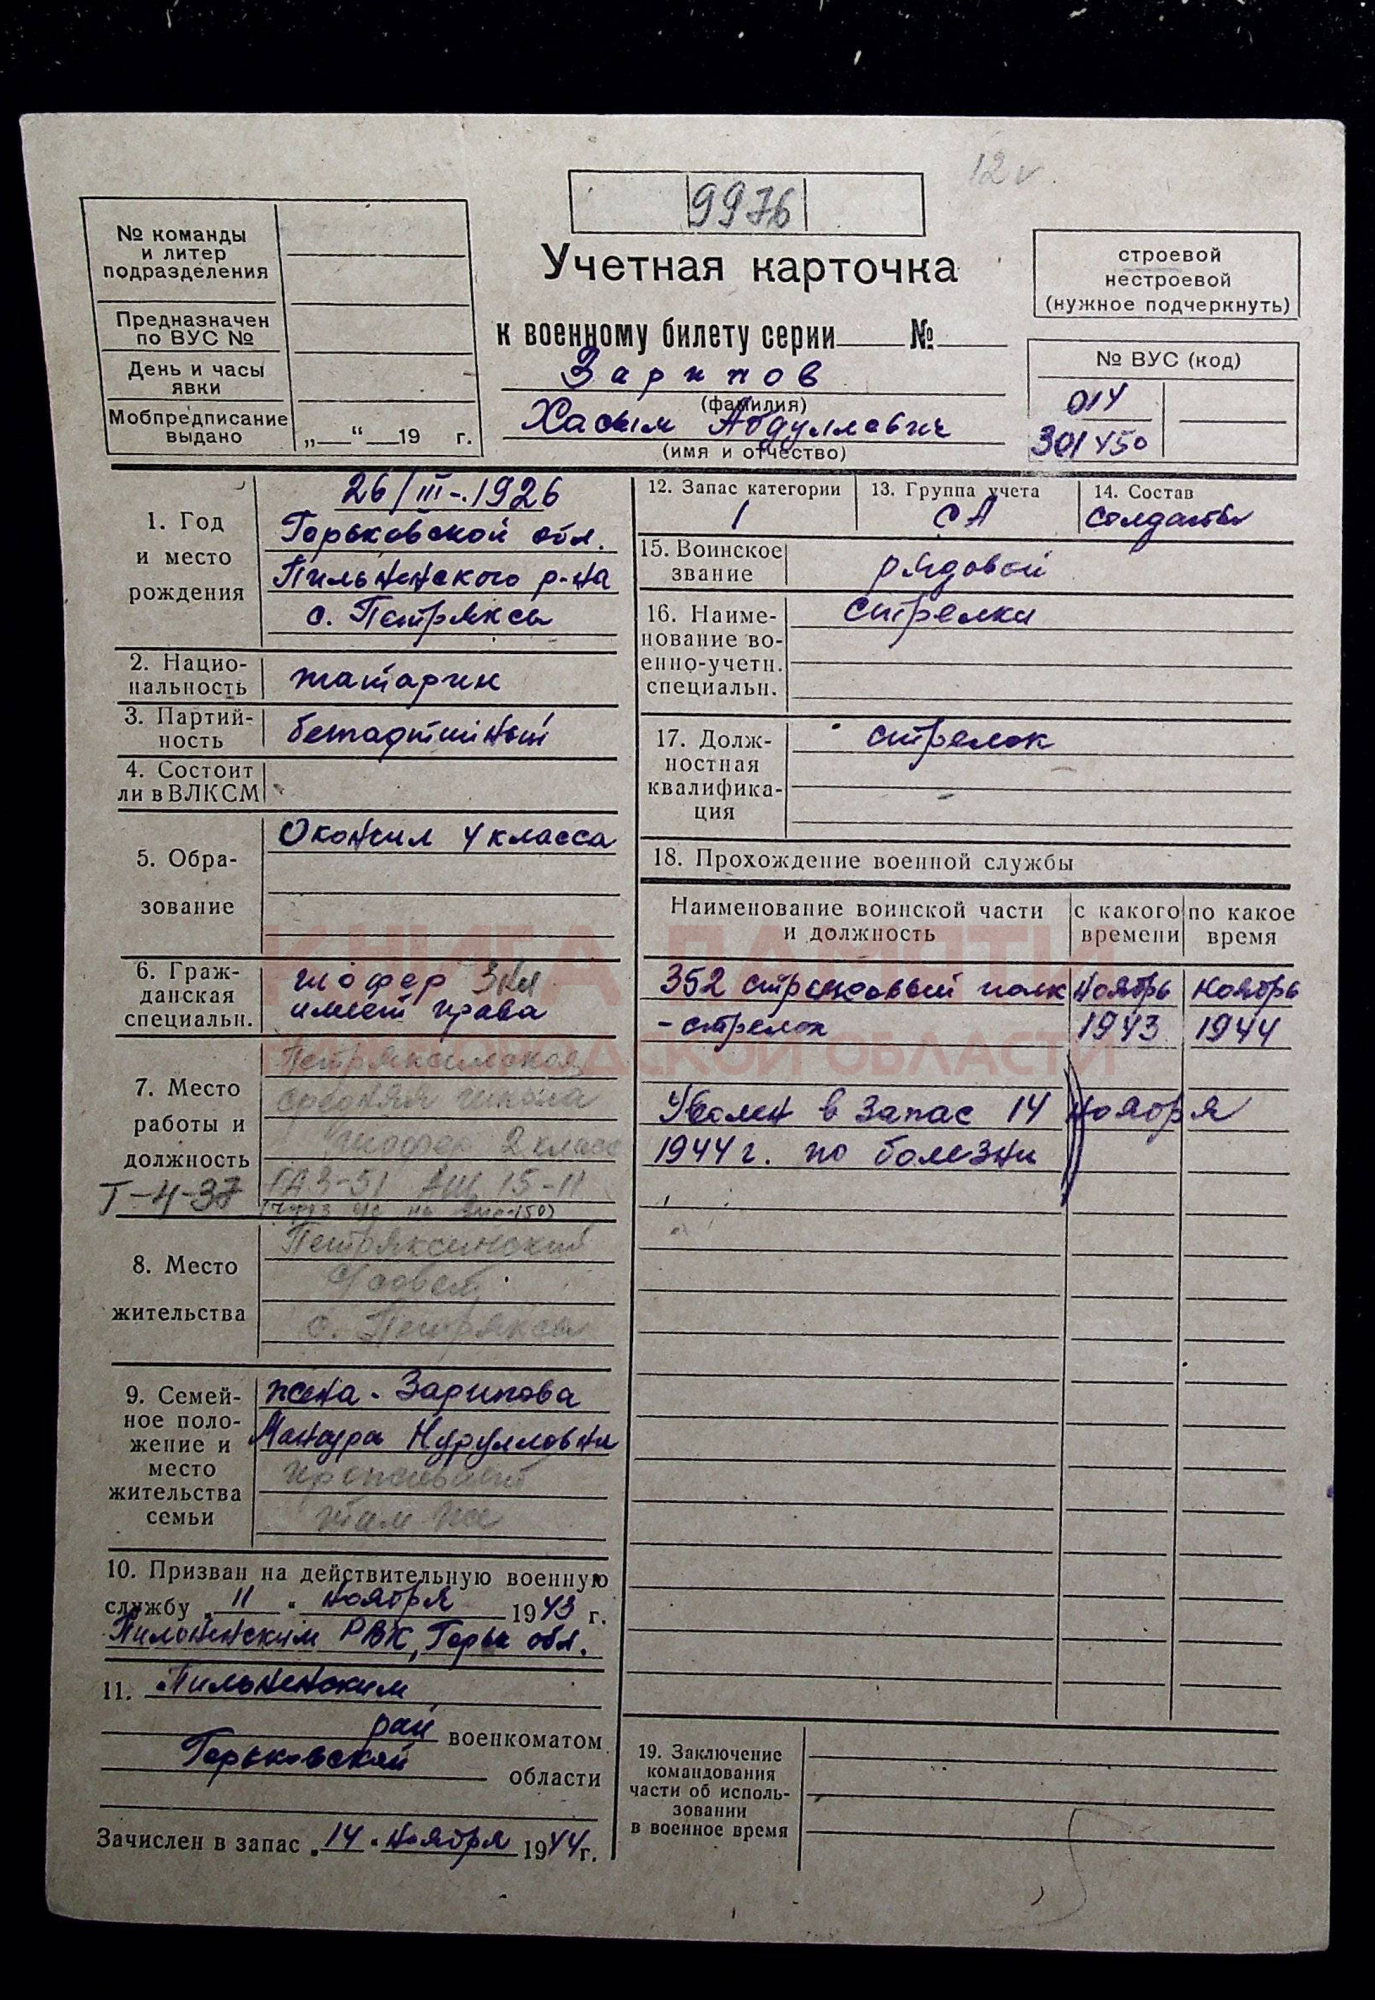 12 v
9976
№ команды
и литер
подразделения
Предназначен
по ВУС №
День и часы
явки
Мобпредписание
выдано
„ “ 19 г.
Учетная карточка
к военному билету серии №
Зарипов
(фамилия)
Хасым Абдуллович
(имя и отчество)
строевой
нестроевой
(нужное подчеркнуть)
№ ВУС (код)
014
301450
1. Год
и место
рождения
26/III-.1926
Горьковской обл.
Пильненского р-на
с. Петряксы
2. Нацио-
нальность
татарин
3. Партий-
ность
беспартийный
4. Состоит
ли в ВЛКСМ
5. Обра-
зование
Окончил 4 класса
6. Граж-
данская
специальн.
шофер 3 кл
имеет права
7. Место
работы и
должность
Т-4-37
Петряксинская
средняя школа
шофер 2 класс
ГАЗ-51 АШ 15-11
8. Место
жительства
Петряксинский
с/совет
с. Петряксы
9. Семей-
ное поло-
жение и
место
жительства
семьи
жена - Зарипова
Нурулловна
проживает
там же
10. Призван на действительную военную
службу „ 11 “ ноября 1943 г.
Пильненским РВК, Горьк обл.
11. Пильненским
рай военкоматом
Горьковской области
Зачислен в запас „ 14 “ ноября 1944 г.
12. Запас категории
1
13. Группа учета
СА
14. Состав
солдаты
15. Воинское
звание
рядовой
16. Наиме-
нование во-
енно-учетн.
специальн.
стрелки
17. Долж-
ностная
квалифика-
ция
стрелок
18. Прохождение военной службы
Наименование воинской части
и должность
с какого
времени
по какое
время
352 стрелковый полк ноябрь ноябрь
- стрелок 1943 1944
Уволен в запас 14 ноября
1944 г. по болезни
19. Заключение
командования
части об исполь-
зовании
в военное время
КНИГА ПАМЯТИ
НИЖЕГОРОДСКОЙ ОБЛАСТИ